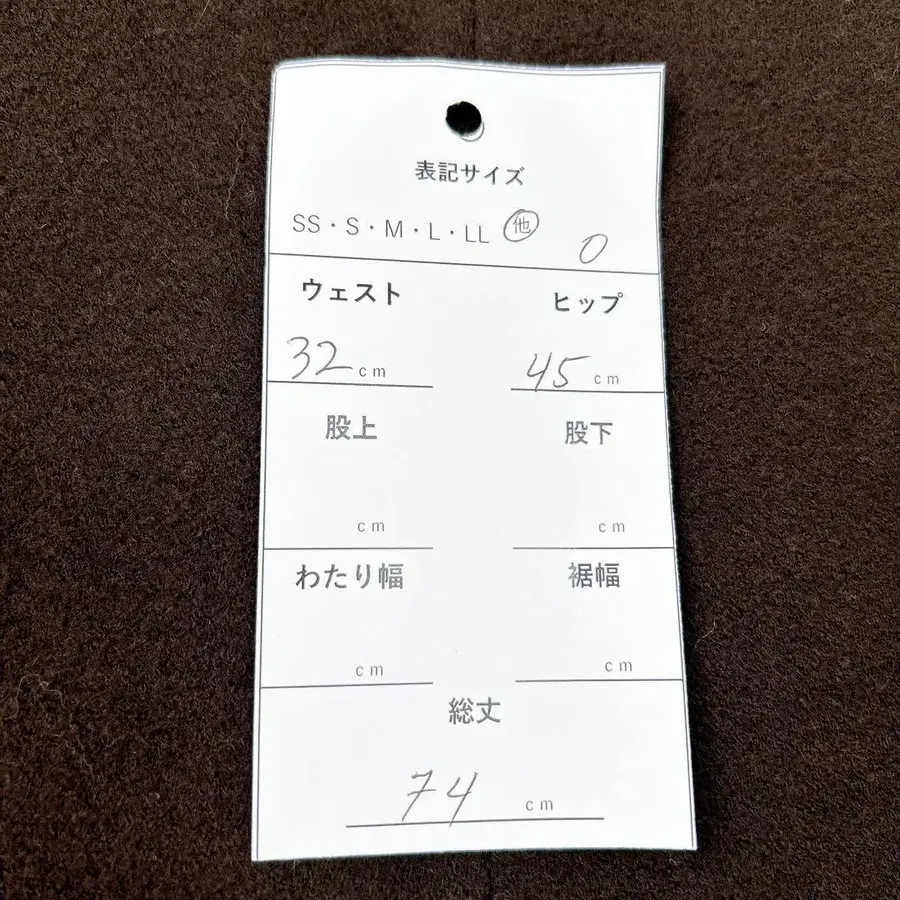 表記サイズ
SS・S・M・L・LL 他 0
ウェスト ヒップ
32 cm 45 cm
股上 股下
cm cm
わたり幅 裾幅
cm cm
総丈
74 cm